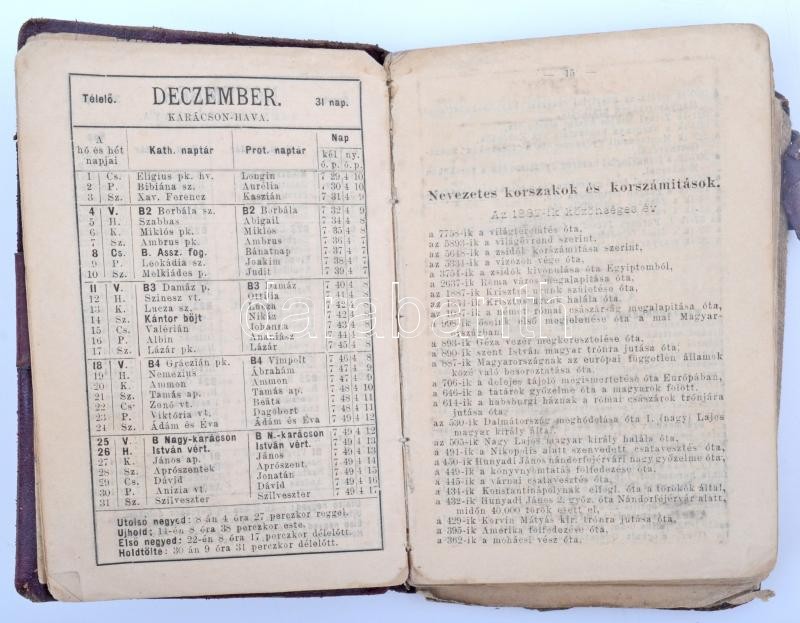 Télelő. DECZEMBER. 31 nap.
KARÁCSON-HAVA.
A hó és hét napjai Kath. naptár Prot. naptár Nap
kél ny.
ó. p. ó. p.
1 Cs. Eligius pk. hv. Longin 7 29 4 10
2 P. Bibiána sz. Aurélia 7 30 4 10
3 Sz. Xav. Ferencz Kaszián 7 31 4 9
4 V. B2 Borbála sz. B2 Borbála 7 32 4 9
5 H. Szabbas Abigail 7 34 4 8
6 K. Miklós pk. Miklós 7 35 4 8
7 Sz. Ambrus pk. Ambrus 7 36 4 7
8 Cs. B. Assz. fog. Bánatnap 7 37 4 7
9 P. Leokádia sz. Joakim 7 38 4 7
10 Sz. Melkiádes p. Judit 7 39 4 7
11 V. B3 Damáz p. B3 Dámáz 7 40 4 8
12 H. Szinesz vt. Ottilia 7 41 4 8
13 K. Lucza sz. Lucza 7 42 4 8
14 Sz. Kántor bőjt Nikáz 7 43 4 8
15 Cs. Valérián Johanza 7 44 4 8
16 P. Albin Ananiász 7 44 4 8
17 Sz. Lázár pk. Lázár 7 45 4 8
18 V. B4 Gráczián pk. B4 Vimpolt 7 46 4 8
19 H. Nemezius Ábrahám 7 46 4 9
20 K. Ammon Ammon 7 47 4 9
21 Sz. Tamás ap. Tamás ap. 7 48 4 10
22 Cs. Zenó vt. Beáta 7 48 4 11
23 P. Viktória vt. Dagobert 7 48 4 11
24 Sz. Ádám és Éva Ádám és Éva 7 49 4 12
25 V. B Nagy-karácson B N.-karácson 7 49 4 12
26 H. István vért. István vért. 7 49 4 13
27 K. János ap. János 7 49 4 13
28 Sz. Aprószentek Aprószent. 7 49 4 14
29 Cs. Dávid Jonatán 7 49 4 15
30 P. Anizia vt. Dávid 7 49 4 16
31 Sz. Szilveszter Szilveszter 7 49 4 17
Utolsó negyed: 8 án 4 óra 27 perczkor reggel.
Ujhold: 14-én 8 óra 38 perczkor este.
Első negyed: 22-én 8 óra 17 perczkor délelőtt.
Holdtölte: 30 án 9 óra 31 perczkor délelőtt.
— 15 —
Nevezetes korszakok és korszámitások.
Az 1887-ik közönséges év
a 7758-ik a világteremtés óta,
az 5893-ik a világrend szerint,
az 5648-ik a zsidók korszámitása szerint,
az 5334-ik a vizözön vége óta,
a 3754-ik a zsidók kivonulása óta Egyiptomból,
a 2637-ik Róma város megalapitása óta,
az 1887-ik Krisztus urunk születése óta,
az Krisztus urunk halála óta,
a a német római császárság megalapitása óta,
a 999-ik őseink első megjelenése óta a mai Magyar-
országban,
a 893-ik Géza vezér megkeresztelése óta,
a 890-ik szent István magyar trónra jutása óta,
a 887-ik Magyarországnak az európai független államok
közé való besoroztatása óta,
a 706-ik a delejes tájoló megismertetése óta Európában,
a 646-ik a tatárok győzelme óta a magyarok fölött,
a 614-ik a habsburgi háznak a római császárok trónjára
jutása óta,
az 530-ik Dalmátország meghódolása óta I. (nagy) Lajos
magyar király által,
az 505-ik Nagy Lajos magyar király halála óta,
a 491-ik a Nikopolis alatt szenvedett csatavesztés óta,
a 450-ik Hunyadi János nándorfejérvári nagy győzelme óta,
a 449-ik a könyvnyomtatás fölfedezése óta,
a 445-ik a várnai csatavesztés óta,
a 434-ik Konstantinápolynak elfogl. óta a törökök által,
a 432-ik Hunyadi János 2. győz. óta Nándorfejérvár alatt,
midőn 40,000 török esett el,
a 429-ik Korvin Mátyás kir. trónra jutása óta,
a 395-ik Amérika fölfedezése óta,
a 362-ik a mohácsi vész óta,
darabanth